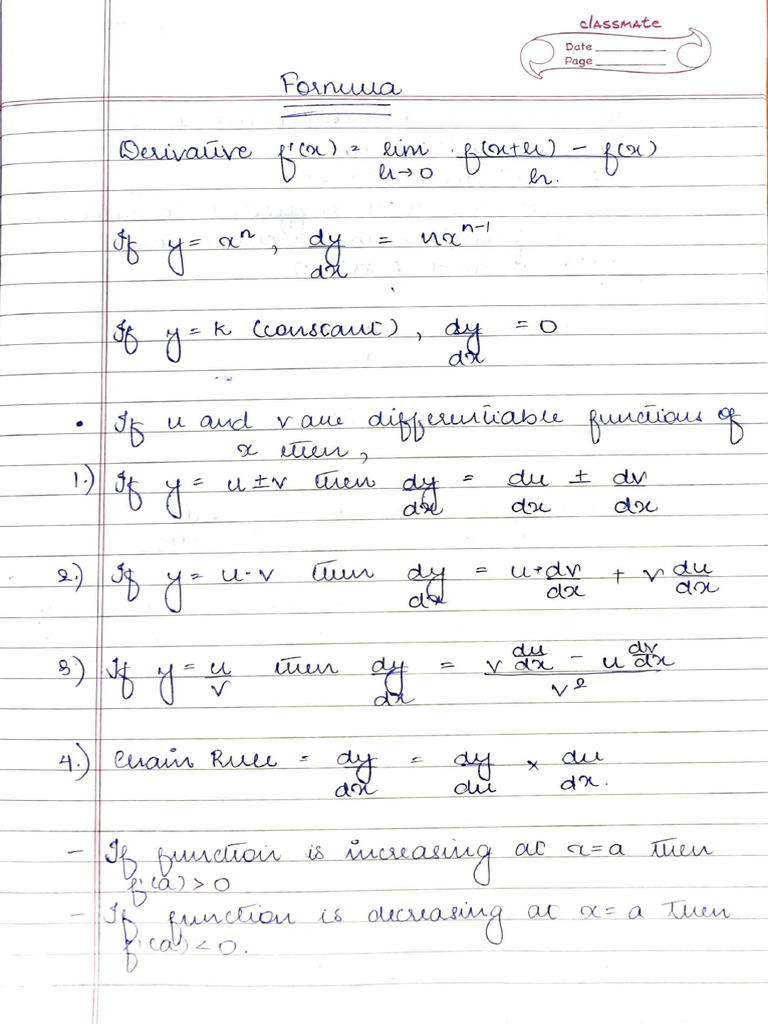 classmate
Date
Page
Formula
Derivative f'(x) = lim f(x+h) - f(x)
h→0 h.
If y = xⁿ, dy/dx = nxⁿ⁻¹
If y = k (constant), dy/dx = 0
• If u and v are differentiable functions of
x then,
1.) If y = u ± v then dy/dx = du/dx ± dv/dx
2.) If y = u·v then dy/dx = u·dv/dx + v du/dx
3.) If y = u/v then dy/dx = (v du/dx - u dv/dx)/v²
4.) Chain Rule = dy/dx = dy/du × du/dx.
- If function is increasing at x=a then
f'(a) > 0
- If function is decreasing at x=a then
f'(a) < 0.